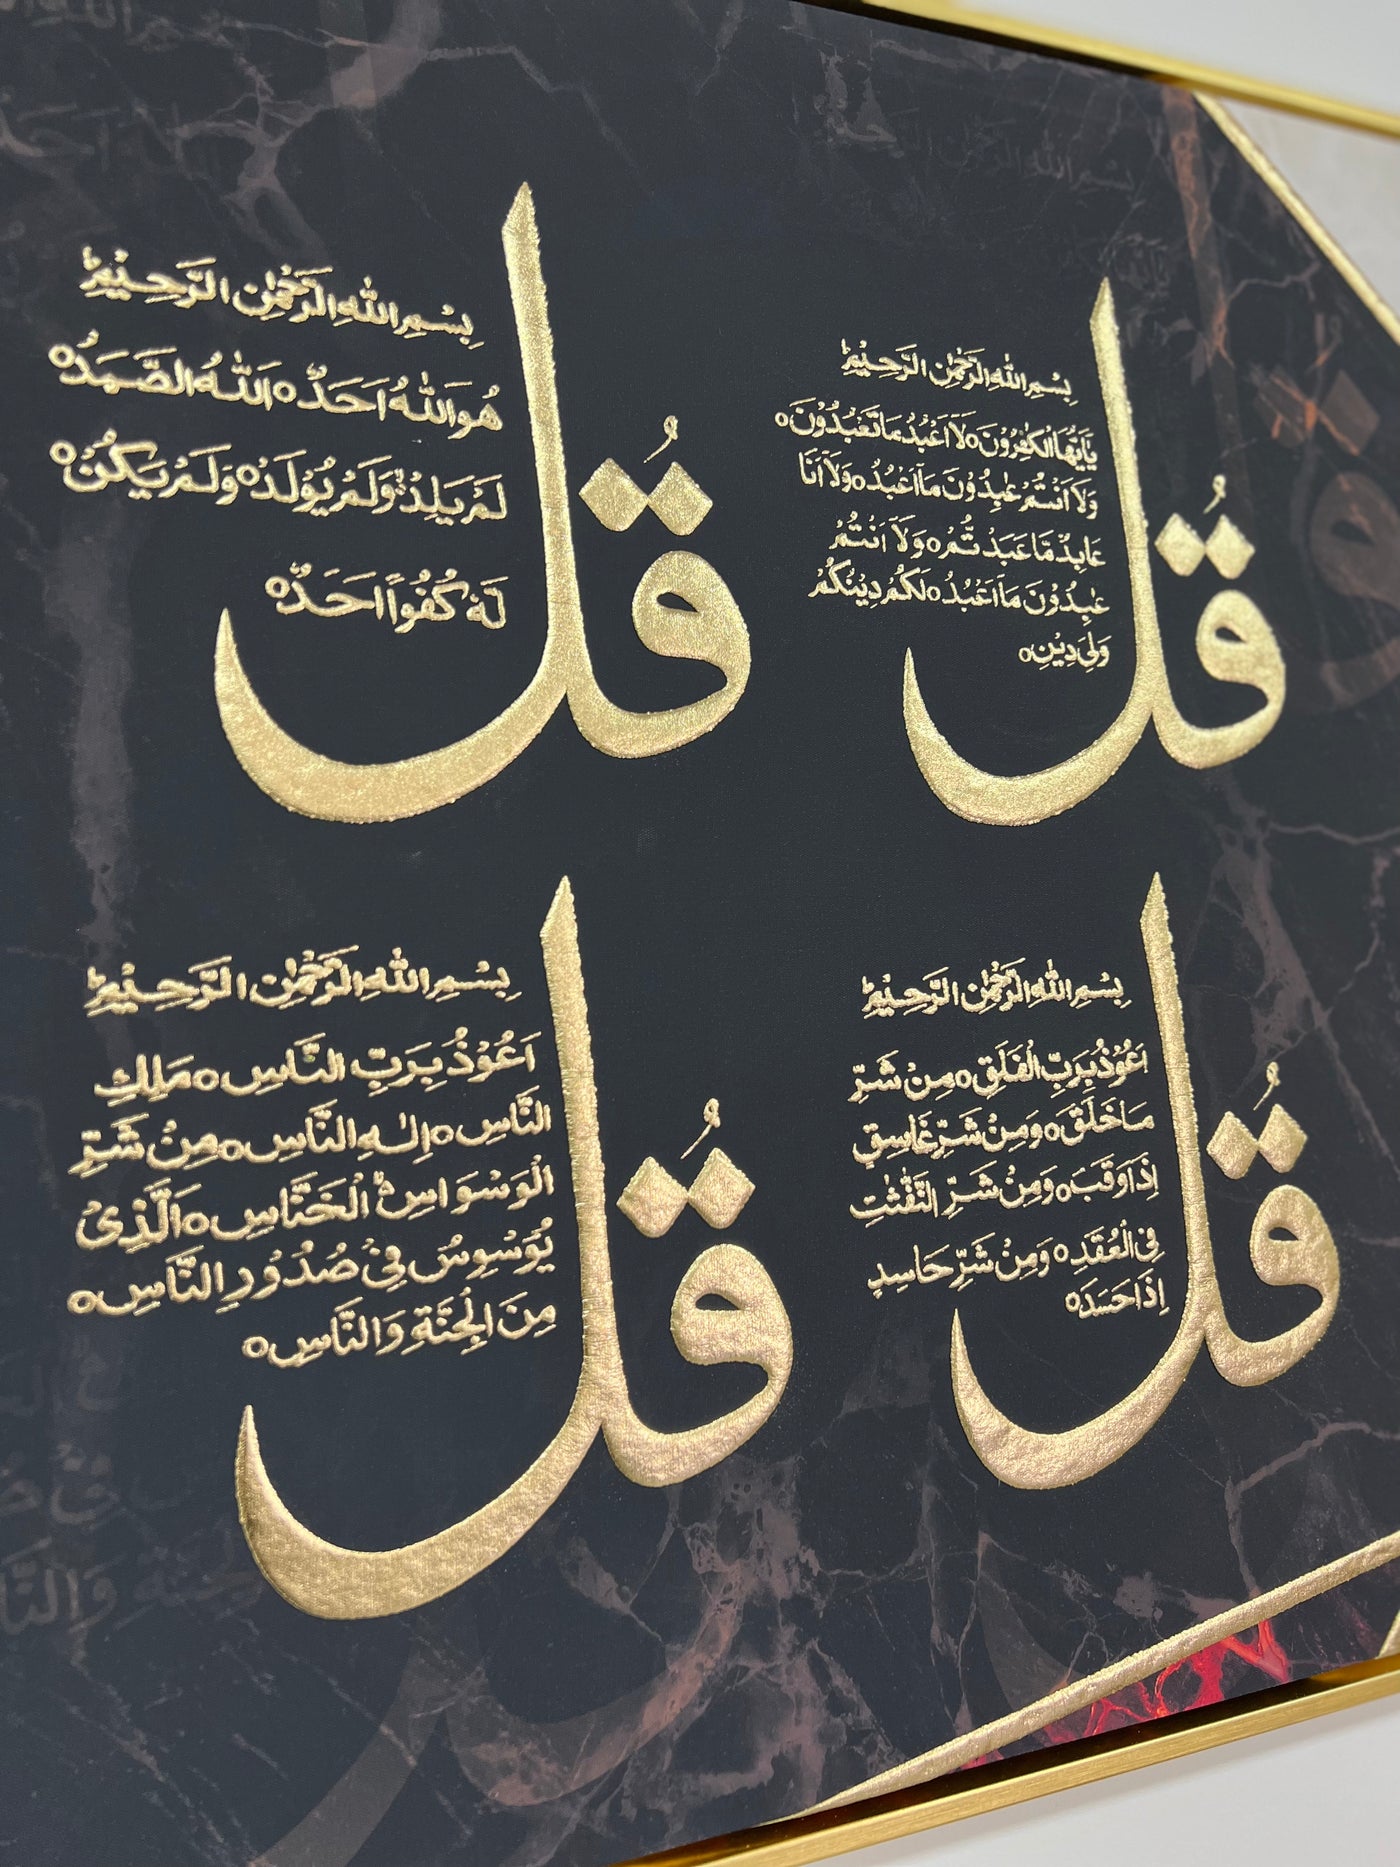 بِسْمِ اللهِ الرَّحْمٰنِ الرَّحِيْمِ
قُل
يٰٓاَيُّهَا الْكٰفِرُوْنَ ○ لَآ اَعْبُدُ مَا تَعْبُدُوْنَ ○
وَلَآ اَنْتُمْ عٰبِدُوْنَ مَآ اَعْبُدُ ○ وَلَآ اَنَا
عَابِدٌ مَّا عَبَدْتُّمْ ○ وَلَآ اَنْتُمْ
عٰبِدُوْنَ مَآ اَعْبُدُ ○ لَكُمْ دِيْنُكُمْ
وَلِيَ دِيْنِ ○
بِسْمِ اللهِ الرَّحْمٰنِ الرَّحِيْمِ
قُل
هُوَ اللهُ اَحَدٌ ○ اَللهُ الصَّمَدُ ○
لَمْ يَلِدْ وَلَمْ يُوْلَدْ ○ وَلَمْ يَكُنْ ○
لَهٗ كُفُوًا اَحَدٌ ○
بِسْمِ اللهِ الرَّحْمٰنِ الرَّحِيْمِ
قُل
اَعُوْذُ بِرَبِّ الْفَلَقِ ○ مِنْ شَرِّ
مَا خَلَقَ ○ وَمِنْ شَرِّ غَاسِقٍ
اِذَا وَقَبَ ○ وَمِنْ شَرِّ النَّفّٰثٰتِ
فِي الْعُقَدِ ○ وَمِنْ شَرِّ حَاسِدٍ
اِذَا حَسَدَ ○
بِسْمِ اللهِ الرَّحْمٰنِ الرَّحِيْمِ
قُل
اَعُوْذُ بِرَبِّ النَّاسِ ○ مَلِكِ
النَّاسِ ○ اِلٰهِ النَّاسِ ○ مِنْ شَرِّ
الْوَسْوَاسِ الْخَنَّاسِ ○ الَّذِيْ
يُوَسْوِسُ فِيْ صُدُوْرِ النَّاسِ ○
مِنَ الْجِنَّةِ وَالنَّاسِ ○